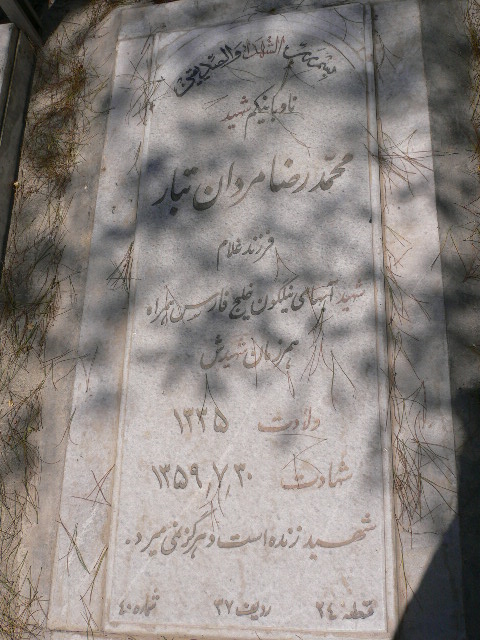 بسم رب الشهدا والصدیقین
ناوبانیکم شهید
محمّدرضا مردان تبار
فرزند غلام
شهید آبهای نیلگون خلیج فارس همراه
همرزمان شهیدش
ولادت ۱۳۳۵
شهادت ۱۳۵۹/۷/۳۰
شهید زنده است و هرگز نمی میرد.
قطعه ۲۴ ردیف ۳۷ شماره ۴۰